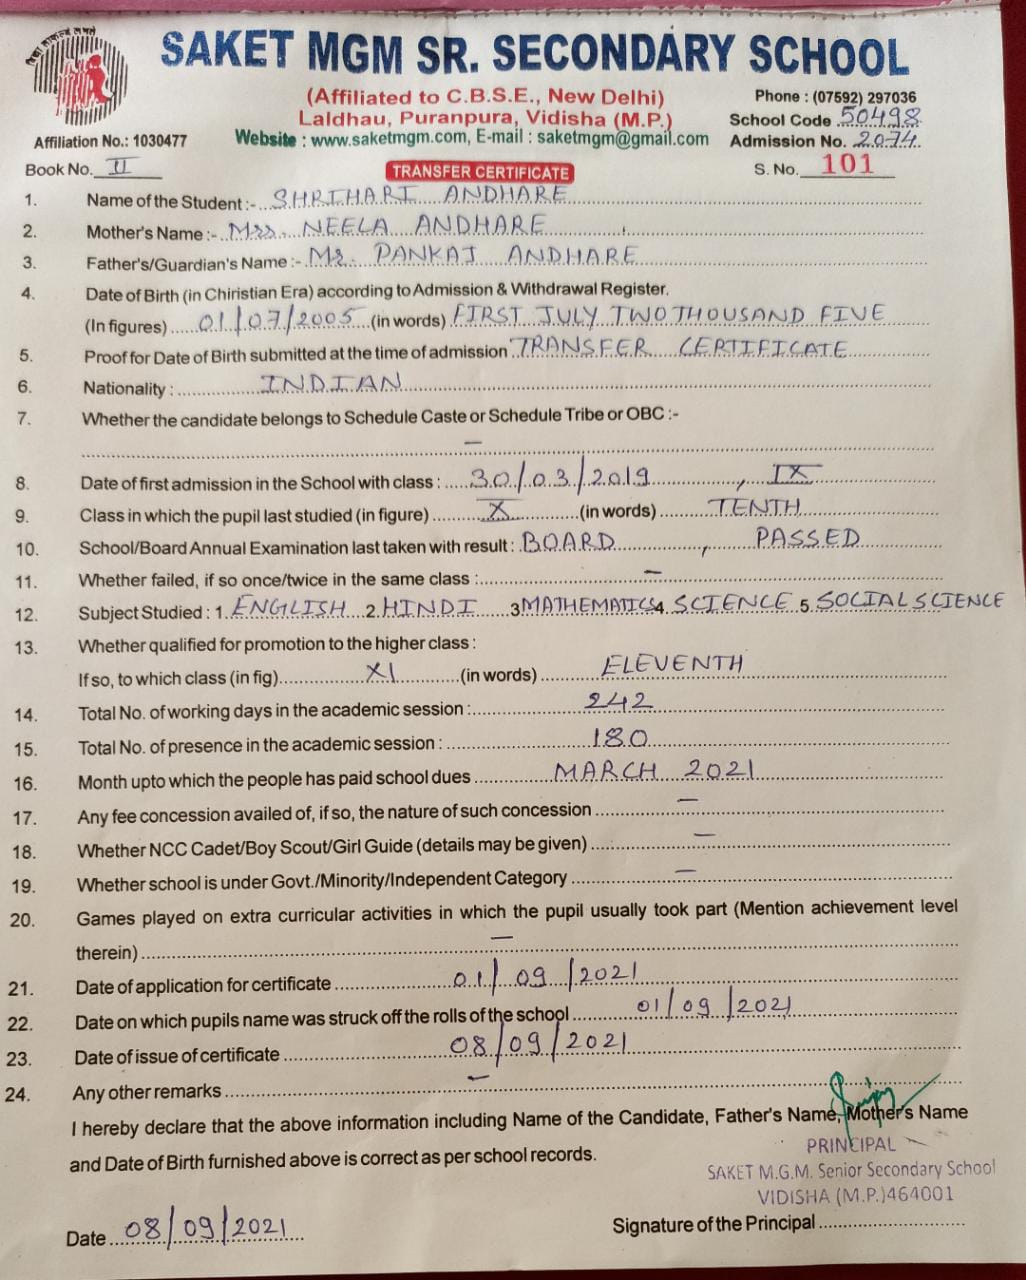 SAKET MGM SR. SECONDARY SCHOOL
(Affiliated to C.B.S.E., New Delhi)
Phone : (07592) 297036
Laldhau, Puranpura, Vidisha (M.P.)
School Code 50498
Affiliation No.: 1030477
Website : www.saketmgm.com, E-mail : saketmgm@gmail.com
Admission No. 2074
Book No. II
TRANSFER CERTIFICATE
S. No. 101
1. Name of the Student :- SHRIHARI ANDHARE
2. Mother's Name :- Mrs. NEELA ANDHARE
3. Father's/Guardian's Name :- Mr. PANKAJ ANDHARE
4. Date of Birth (in Chiristian Era) according to Admission & Withdrawal Register.
(In figures) 01/07/2005 (in words) FIRST JULY TWO THOUSAND FIVE
5. Proof for Date of Birth submitted at the time of admission TRANSFER CERTIFICATE
6. Nationality : INDIAN
7. Whether the candidate belongs to Schedule Caste or Schedule Tribe or OBC :-
—
8. Date of first admission in the School with class : 30/03/2019, IX
9. Class in which the pupil last studied (in figure) X (in words) TENTH
10. School/Board Annual Examination last taken with result : BOARD, PASSED
11. Whether failed, if so once/twice in the same class : —
12. Subject Studied : 1. ENGLISH 2. HINDI 3 MATHEMATICS 4. SCIENCE 5. SOCIAL SCIENCE
13. Whether qualified for promotion to the higher class :
If so, to which class (in fig) XI (in words) ELEVENTH
14. Total No. of working days in the academic session : 242
15. Total No. of presence in the academic session : 180
16. Month upto which the people has paid school dues MARCH 2021
17. Any fee concession availed of, if so, the nature of such concession —
18. Whether NCC Cadet/Boy Scout/Girl Guide (details may be given) —
19. Whether school is under Govt./Minority/Independent Category —
20. Games played on extra curricular activities in which the pupil usually took part (Mention achievement level
therein) —
21. Date of application for certificate 01/09/2021
22. Date on which pupils name was struck off the rolls of the school 01/09/2021
23. Date of issue of certificate 08/09/2021
24. Any other remarks —
I hereby declare that the above information including Name of the Candidate, Father's Name, Mother's Name
and Date of Birth furnished above is correct as per school records.
PRINCIPAL
SAKET M.G.M. Senior Secondary School
VIDISHA (M.P.)464001
Date 08/09/2021
Signature of the Principal